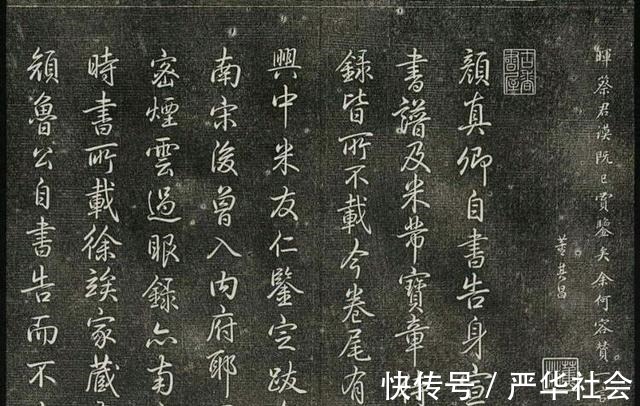 暉蔡君謨既已賞鑒矣余何容贊
董其昌
古香書屋
顏真卿自書告身宣
書譜及米芾寶章待
錄皆所不載今卷尾有
興中米友仁鑒定跋
南宋後曾入內府耶
密煙雲過眼錄亦南
時書所載徐家藏
顏魯公自書告而不
快传号 / 严华社会